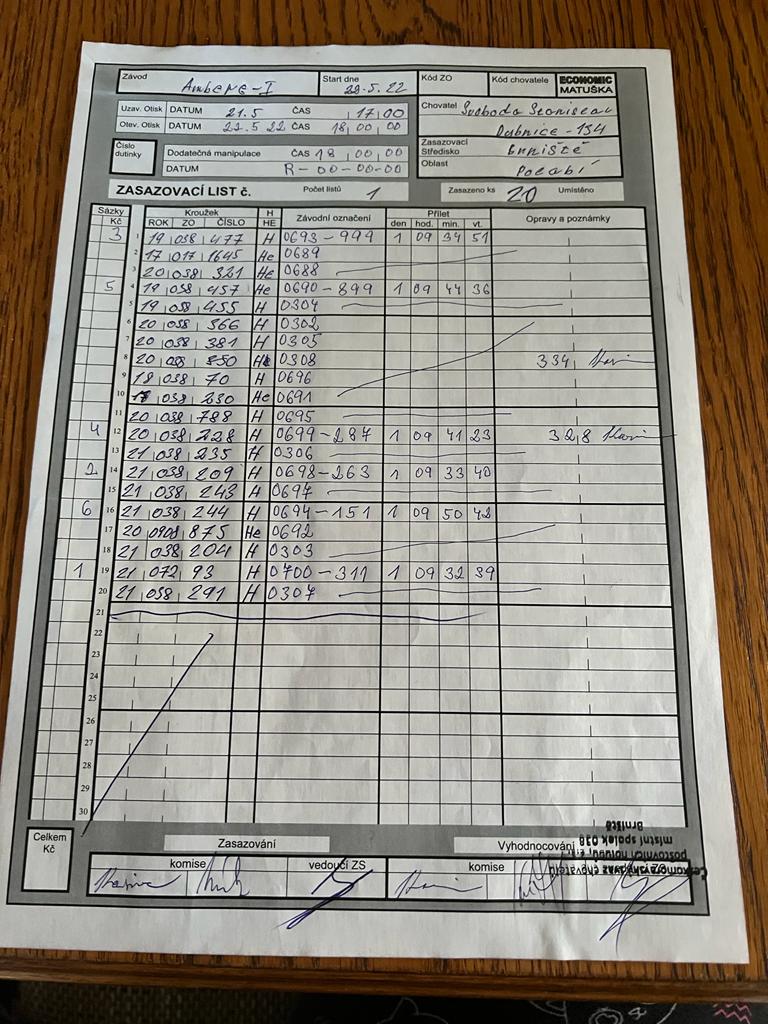 Závod Amberg-I Start dne 22.5.22 Kód ZO Kód chovatele ECONOMIC MATUŠKA
Uzav. Otisk DATUM 21.5 ČAS 17 00
Otev. Otisk DATUM 22.5 22 ČAS 18 00 00
Chovatel Svoboda Stanislav
Dubnice - 154
Číslo dutinky
Dodatečná manipulace ČAS 18 00 00
DATUM R-00-00-00
Zasazovací Středisko Brniště
Oblast Polabí
ZASAZOVACÍ LIST č. Počet listů 1 Zasazeno ks 20 Umístěno
Sázky Kč Kroužek H Závodní označení Přílet Opravy a poznámky
ROK ZO ČÍSLO HE den hod. min. vt.
3 1 19 038 477 H 0693-999 1 09 34 51
2 17 017 1645 He 0689
3 20 038 321 He 0688
5 4 19 038 457 He 0690-899 1 09 44 36
5 19 038 455 H 0304
6 20 038 366 H 0302
7 20 038 381 H 0305
8 20 038 350 0308 334
9 038 70 H 0696
10 038 230 He 0691
11 20 038 788 H 0695
4 12 20 038 228 H 0699-287 1 09 41 23 328
13 21 038 235 H 0306
2 14 21 038 209 H 0698-263 1 09 33 40
15 21 038 243 H 0697
6 16 21 038 244 H 0694-151 1 09 50 42
17 20 0908 875 He 0692
18 21 038 204 H 0303
1 19 21 072 93 H 0700-311 1 09 32 39
20 21 038 291 H 0307
21
22
23
24
25
26
27
28
29
30
Celkem Kč
Zasazování Vyhodnocování
komise vedoučí ZS komise ZO
Českomoravský svaz chovatelů
poštovních holubů,
místní spolek 038
Brniště